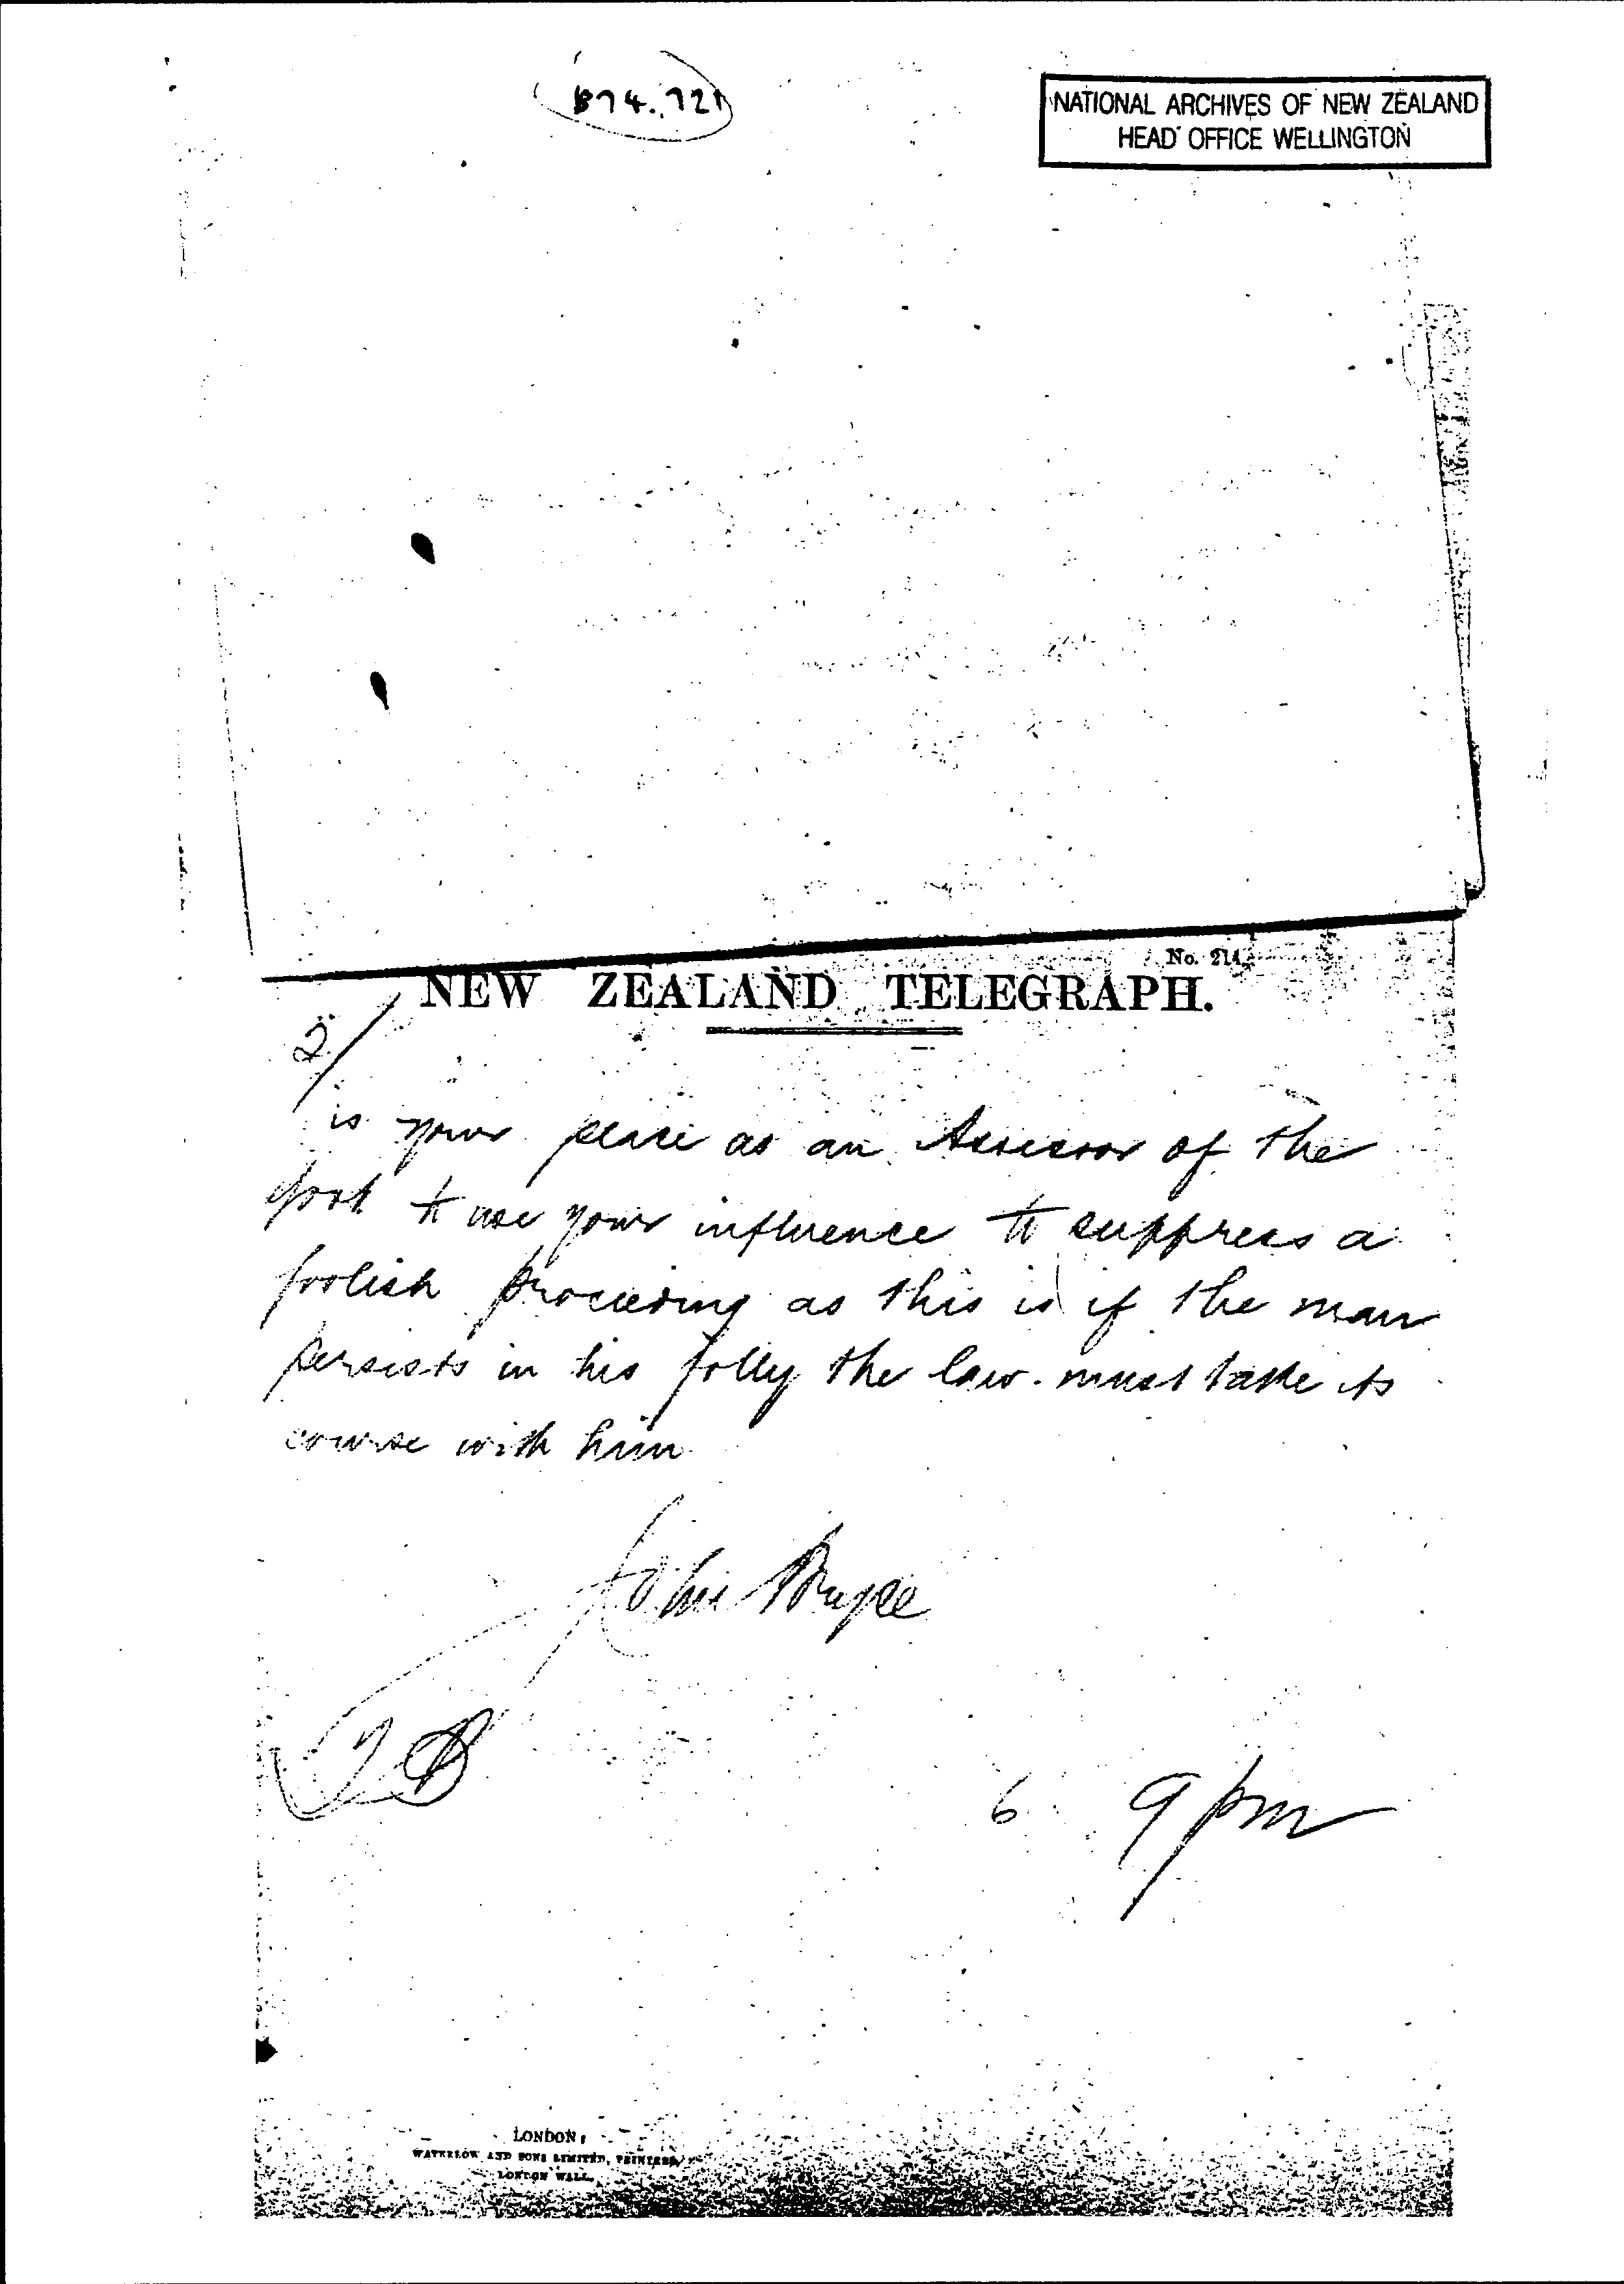 874.721
NATIONAL ARCHIVES OF NEW ZEALAND
HEAD OFFICE WELLINGTON
No. 214
NEW ZEALAND TELEGRAPH.
2/
is your place as an Assessor of the
Govt to use your influence to suppress a
foolish proceeding as this is if the man
persists in his folly the law must take its
course with him
John Bryce
6 9 pm
LONDON:
WATERLOW AND SONS LIMITED, PRINTERS,
LONDON WALL.